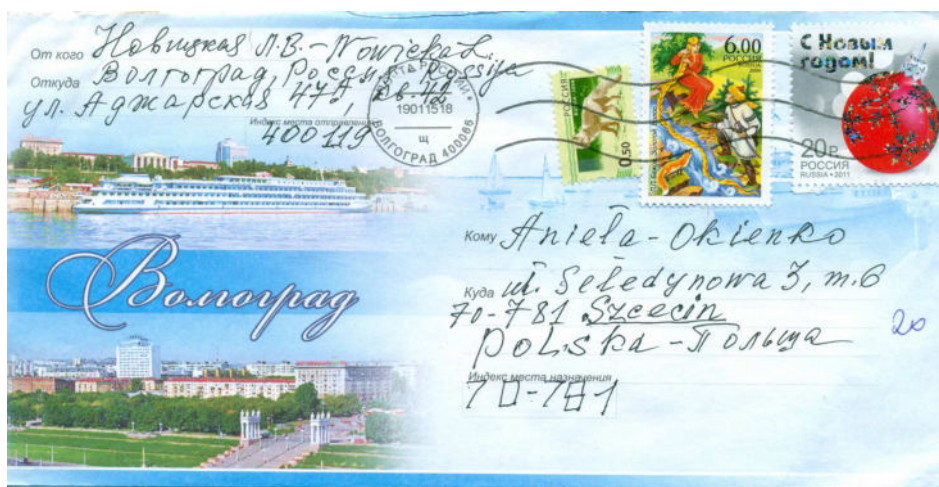 От кого Новицкая Л.В. – Nowicka L.
Откуда Волгоград, Россия, Rossija
ул. Аджарская 47а, кв. 42
Индекс места отправления
400119
ПОЧТА РОССИИ
19011518
Щ
ВОЛГОГРАД 400066
РОССИЯ
0.50
6.00
РОССИЯ
С Новым
годом!
20 р.
РОССИЯ
RUSSIA • 2011
Волгоград
Кому Aniela - Okienko
Куда ul. Seledynowa 3, m. 6
70-781 Szczecin
POLSKA – Польща
20
Индекс места назначения
70-781